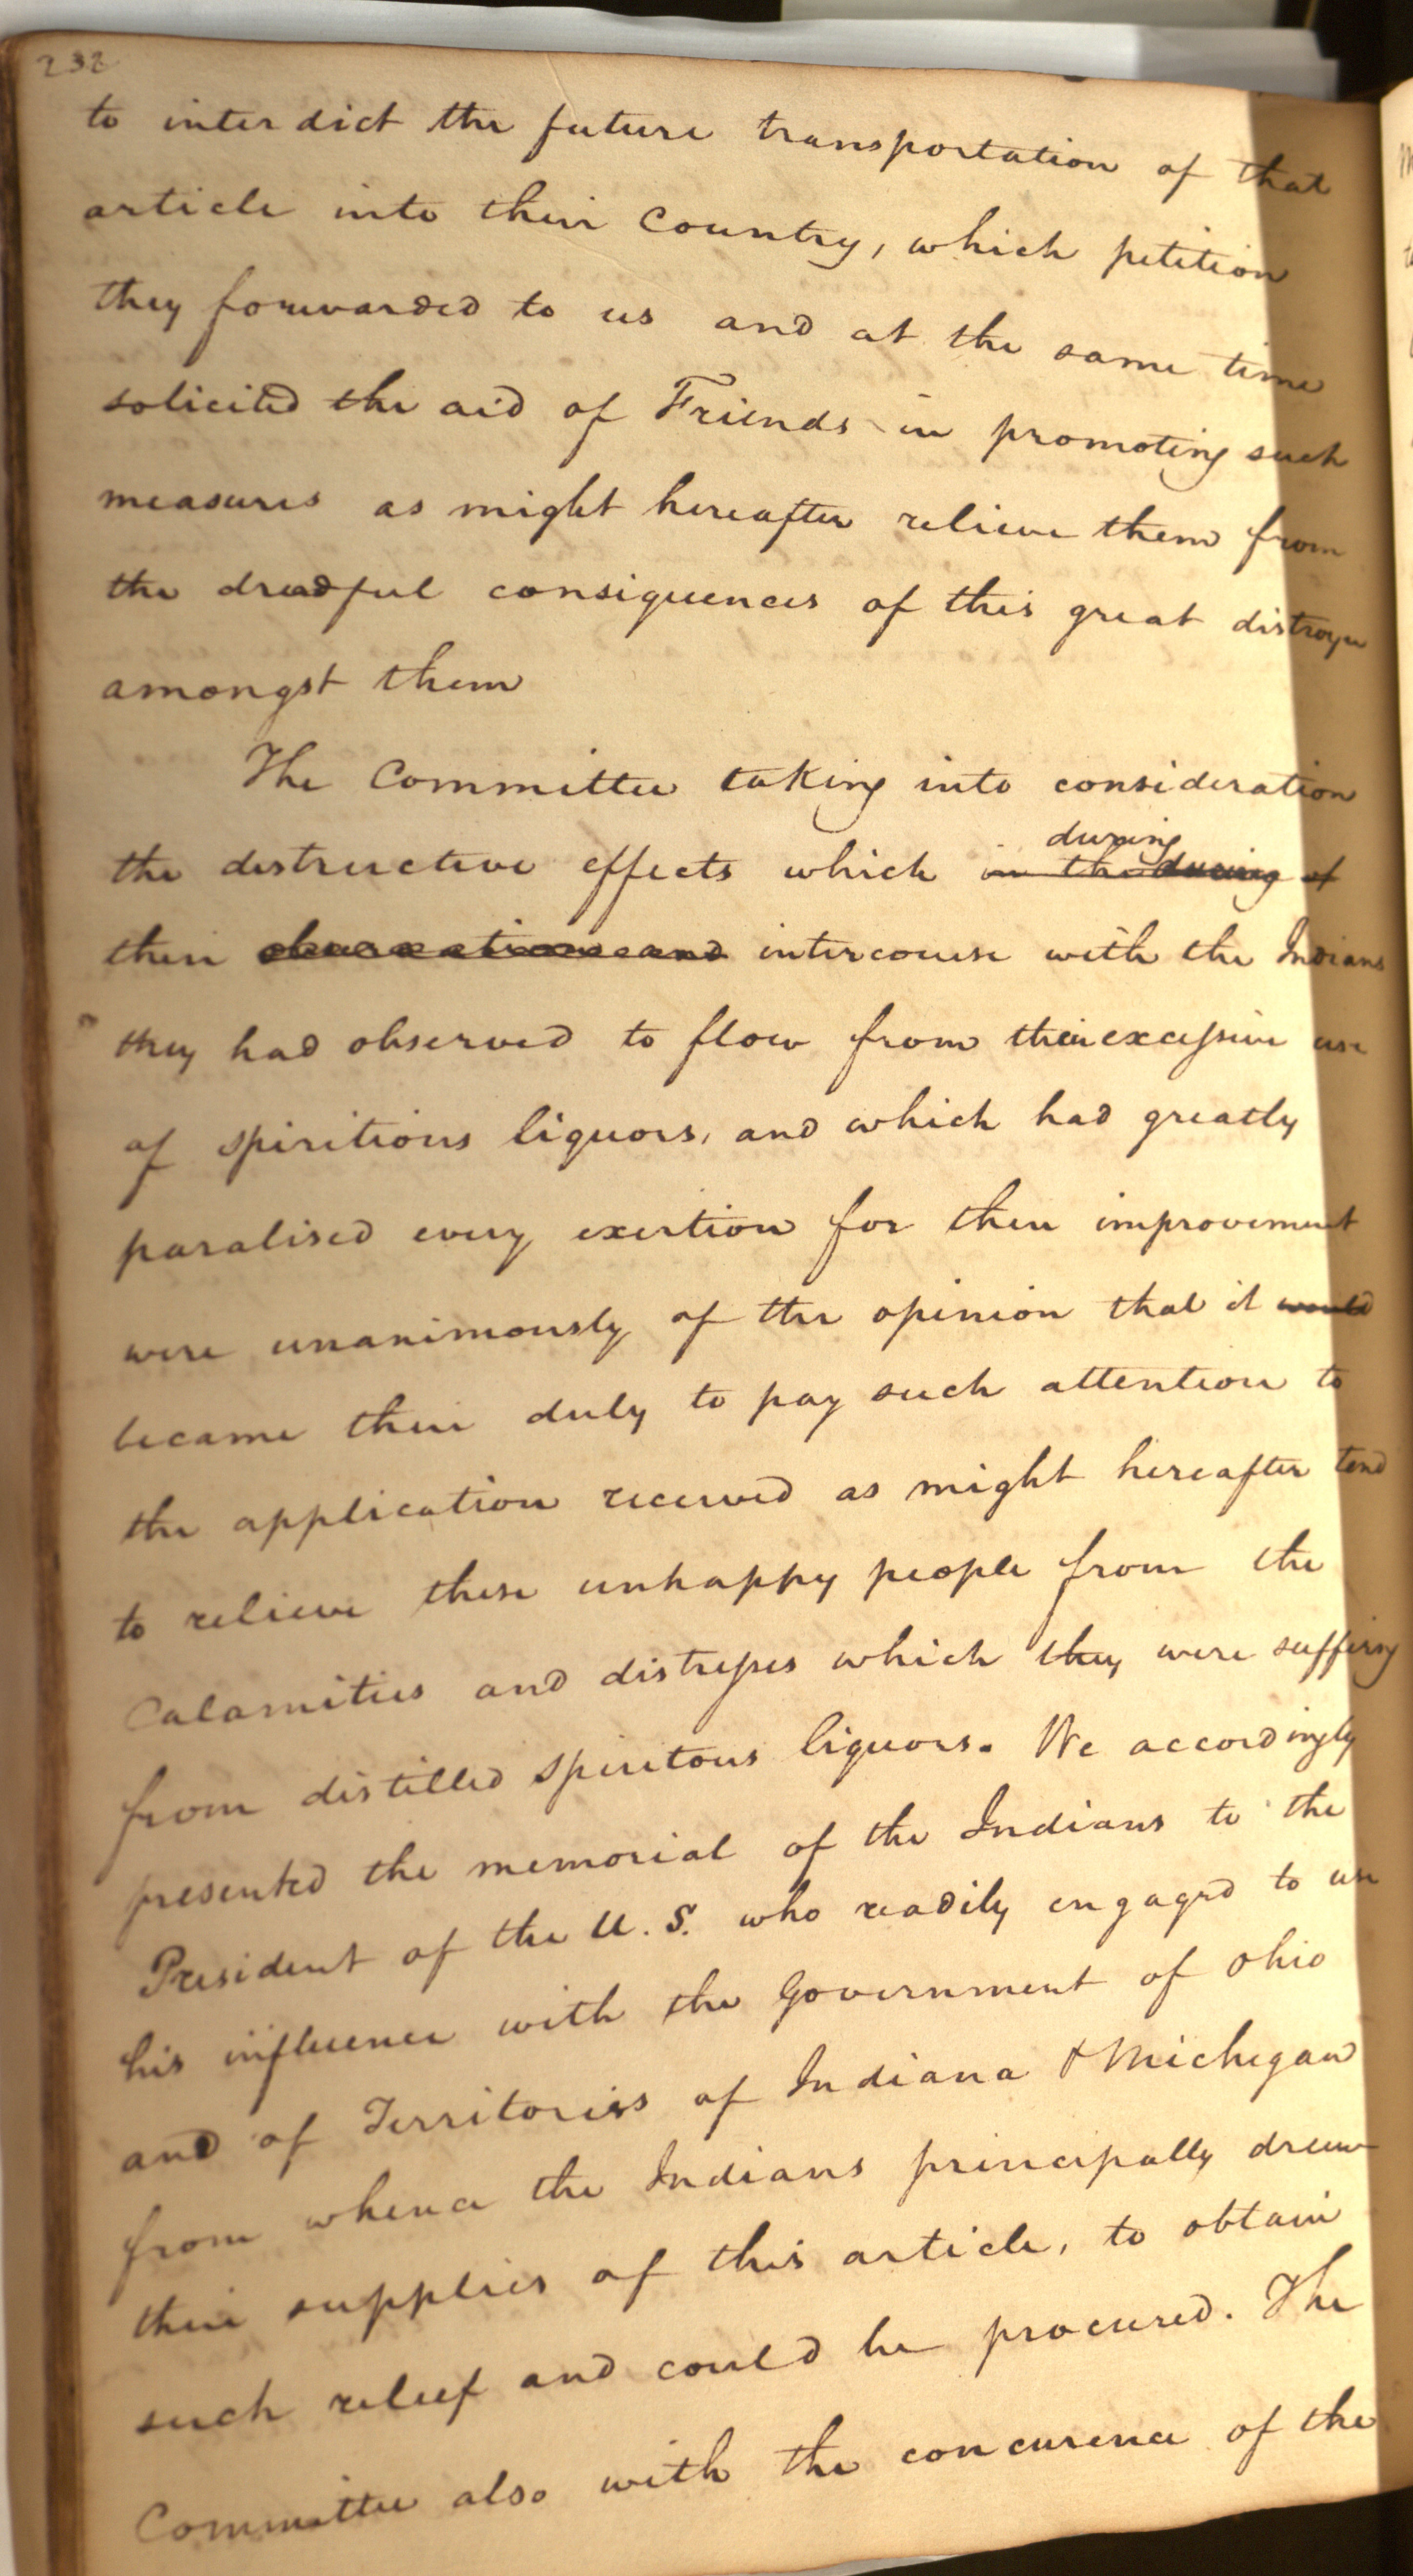 232
to interdict the future transportation of that
article into their Country, which petition
they forwarded to us and at the same time
solicited the aid of Friends in promoting such
measures as might hereafter relieve them from
the dreadful consiquences of this great distroyer
amongst them
The Committee taking into consideration
during
the destructive effects which in the during of
their observations and intercourse with the Indians
they had observed to flow from their excessive use
of spiritious liquors, and which had greatly
paralised every exertion for their improvement
were unanimously of the opinion that it would
became their duty to pay such attention to
the application received as might hereafter tend
to relieve these unhappy people from the
Calamities and distresses which they were suffering
from distilled spiritous liquors. We accordingly
presented the memorial of the Indians to the
President of the U. S. who readily engaged to use
his influence with the Government of Ohio
and of Territories of Indiana & Michigan
from whence the Indians principally drew
their supplies of this article, to obtain
such relief and could be procured. The
Committee also with the concurence of the